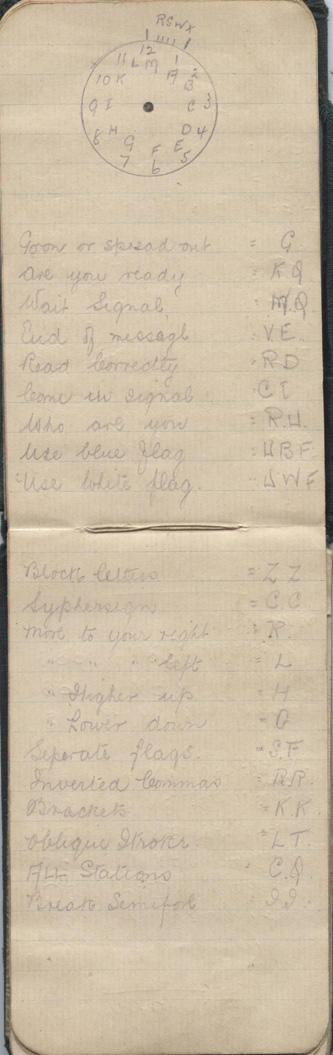 RSWX
12
11 L M 1
A 2
10 K B
9 I C 3
8 H D 4
G F E
7 6 5
Go on or spread out = G.
Are you ready = K Q
Wait Signal = M.Q.
End of message = V.E.
Read Correctly = R D
Come in signal = C I
Who are you = R.U.
Use blue flag = U B F
Use White flag. = U W F
Block letters = Z Z
Syphersign = C.C
Move to your right = R.
" " " " left = L
" Higher up = H
" Lower down = O
Seperate flags. = S.F
Inverted Commas = R R.
Brackets = K K
Oblique Stroke = L T.
All Stations = C.Q
Break Semifore = I I.